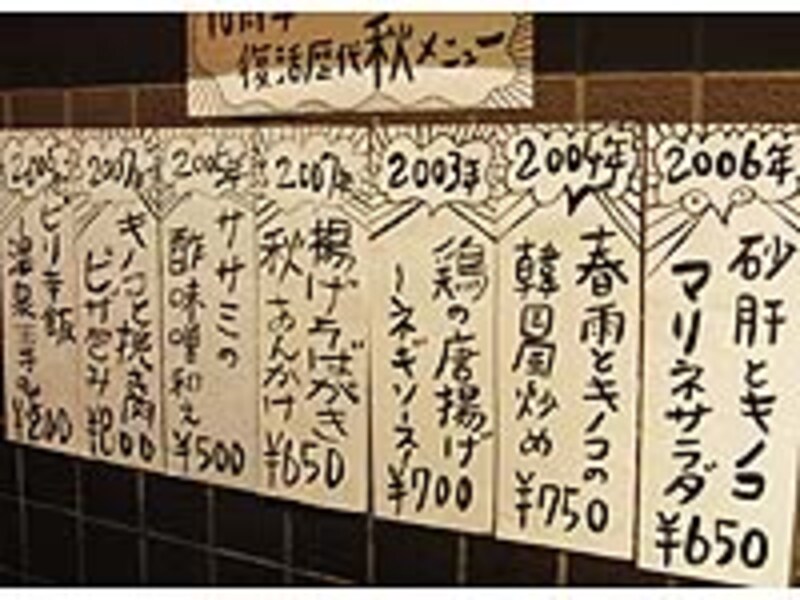 10周年
復活歴代秋メニュー
2006年
砂肝とキノコ
マリネサラダ
¥650
2004年
春雨とキノコの
韓国風炒め
¥750
2003年
鶏の唐揚げ
~ネギソース~
¥700
2007年
揚げ
秋あんかけ
¥650
ササミの
酢味噌和え
¥500
2007年
キノコと挽き肉
ピザ包み
ピリ辛飯